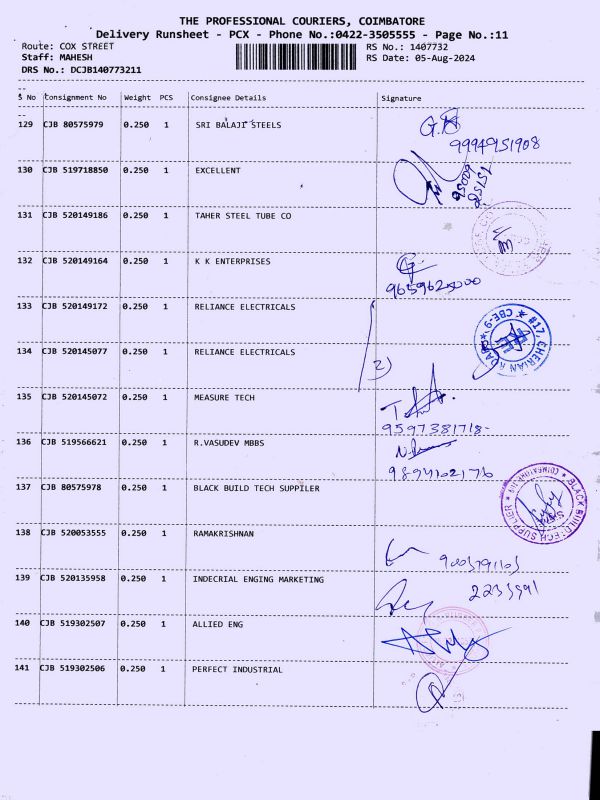 THE PROFESSIONAL COURIERS, COIMBATORE
Delivery Runsheet - PCX - Phone No.:0422-3505555 - Page No.:11
Route: COX STREET RS No.: 1407732
Staff: MAHESH RS Date: 05-Aug-2024
DRS No.: DCJB140773211
S No Consignment No Weight PCS Consignee Details Signature
129 CJB 80575979 0.250 1 SRI BALAJI STEELS
9994951908
130 CJB 519718850 0.250 1 EXCELLENT
131 CJB 520149186 0.250 1 TAHER STEEL TUBE CO
132 CJB 520149164 0.250 1 K K ENTERPRISES
133 CJB 520149172 0.250 1 RELIANCE ELECTRICALS
#17, CHERIAN
CBE-9
134 CJB 520145077 0.250 1 RELIANCE ELECTRICALS
2)
135 CJB 520145072 0.250 1 MEASURE TECH
9597381718
136 CJB 519566621 0.250 1 R.VASUDEV MBBS
137 CJB 80575978 0.250 1 BLACK BUILD TECH SUPPILER
BLACK BUILD TECH SUPPLIER
138 CJB 520053555 0.250 1 RAMAKRISHNAN
139 CJB 520135958 0.250 1 INDECRIAL ENGING MARKETING
140 CJB 519302507 0.250 1 ALLIED ENG
141 CJB 519302506 0.250 1 PERFECT INDUSTRIAL